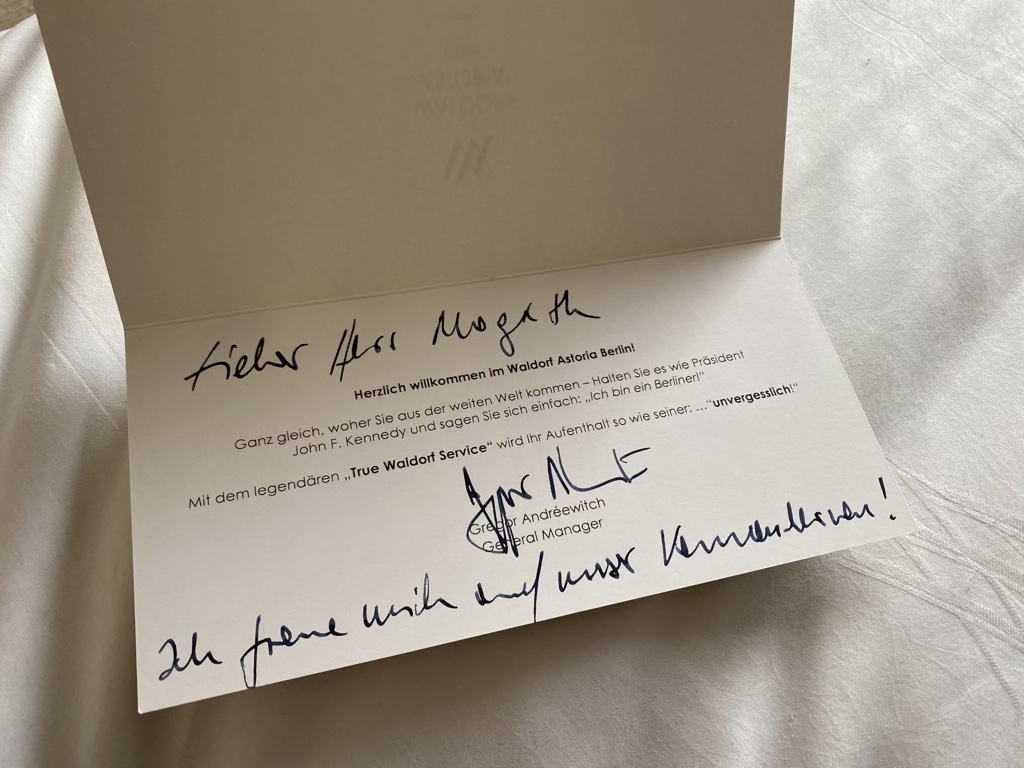 WALDORF
ASTORIA
Lieber Herr Magath
Herzlich willkommen im Waldorf Astoria Berlin!
Ganz gleich, woher Sie aus der weiten Welt kommen – Halten Sie es wie Präsident
John F. Kennedy und sagen Sie sich einfach: „Ich bin ein Berliner!"
Mit dem legendären „True Waldorf Service" wird Ihr Aufenthalt so wie seiner: ..."unvergesslich!"
Gregor Andréewitch
General Manager
Ich freue mich auf unser Kennenlernen!